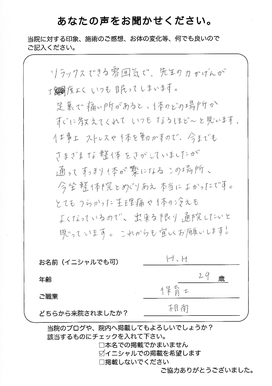 あなたの声をお聞かせください。
当院に対する印象、施術のご感想、お体の変化等、何でも良いので
ご記入ください。
リラックスできる雰囲気で、先生の力かげんが
よく いつも 眠ってしまいます。
足裏で痛い所があると、体のどの場所か
すぐに教えてくれて いつも なるほど〜と思います。
仕事上 ストレスや体を動かすので、今までも
さまざまな整体をさがしていましたが
通って すっきり 体が楽になる この場所、
今堂整体院とめぐりあえ 本当によかったです。
とても つらかった 生理痛や 体の冷えも
よくなっているので、出来る限り 通院したいと
思っています。これからも 宜しくお願いします!
お名前(イニシャルでも可) H.H
年齢 29 歳
ご職業 保育士
どちらから来院されましたか?
当院のブログや、院内へ掲載してもよろしいでしょうか?
該当するものにチェックを入れて下さい。
□本名での掲載でかまいません
☑イニシャルでの掲載を希望します
□掲載しないでください
ご協力ありがとうございました。